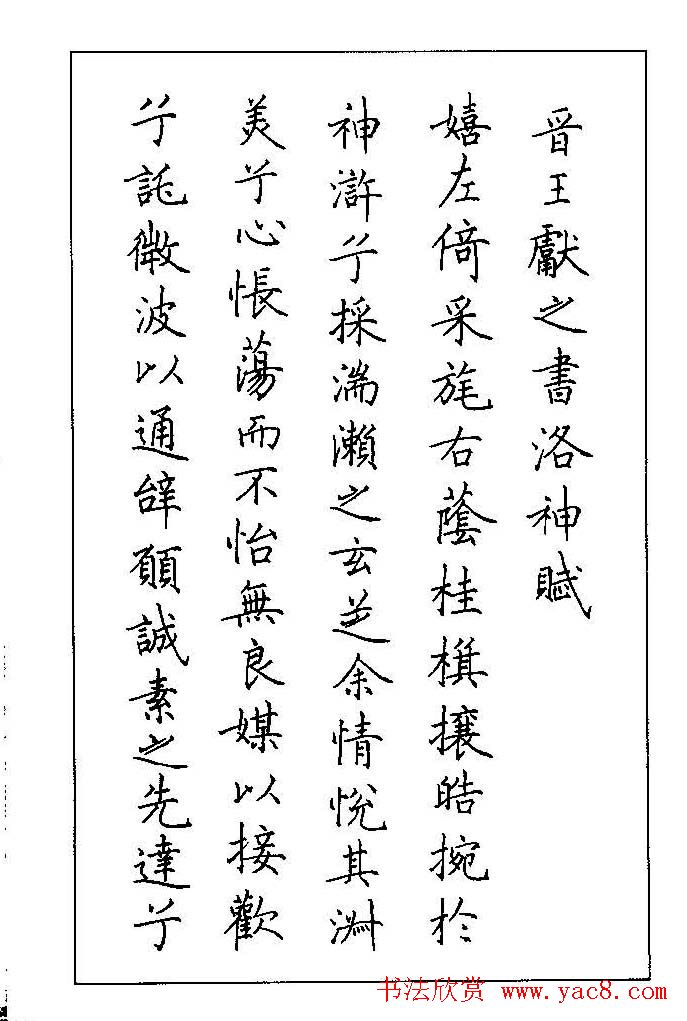 晋王獻之書洛神賦
嬉左倚采旄右蔭桂旗攘皓捥於
神滸兮採湍瀨之玄芝余情悅其淑
美兮心悵蕩而不怡無良媒以接歡
兮託微波以通辭願誠素之先達兮
书法欣赏 www.yac8.com